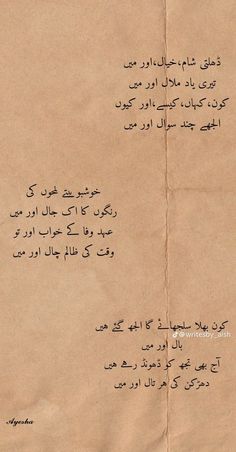 ڈھلتی شام،خیال،اور میں
تیری یاد ملال اور میں
کون،کہاں،کیسے،اور کیوں
الجھے چند سوال اور میں
خوشبو بیتے لمحوں کی
رنگوں کا اک جال اور میں
عہد وفا کے خواب اور تو
وقت کی ظالم چال اور میں
کون بھلا سلجھائے گا الجھ گئے ہیں
بال اور میں
آج بھی تجھ کو ڈھونڈ رہے ہیں
دھڑکن کی ہر تال اور میں
@writesby_aish
Ayesha